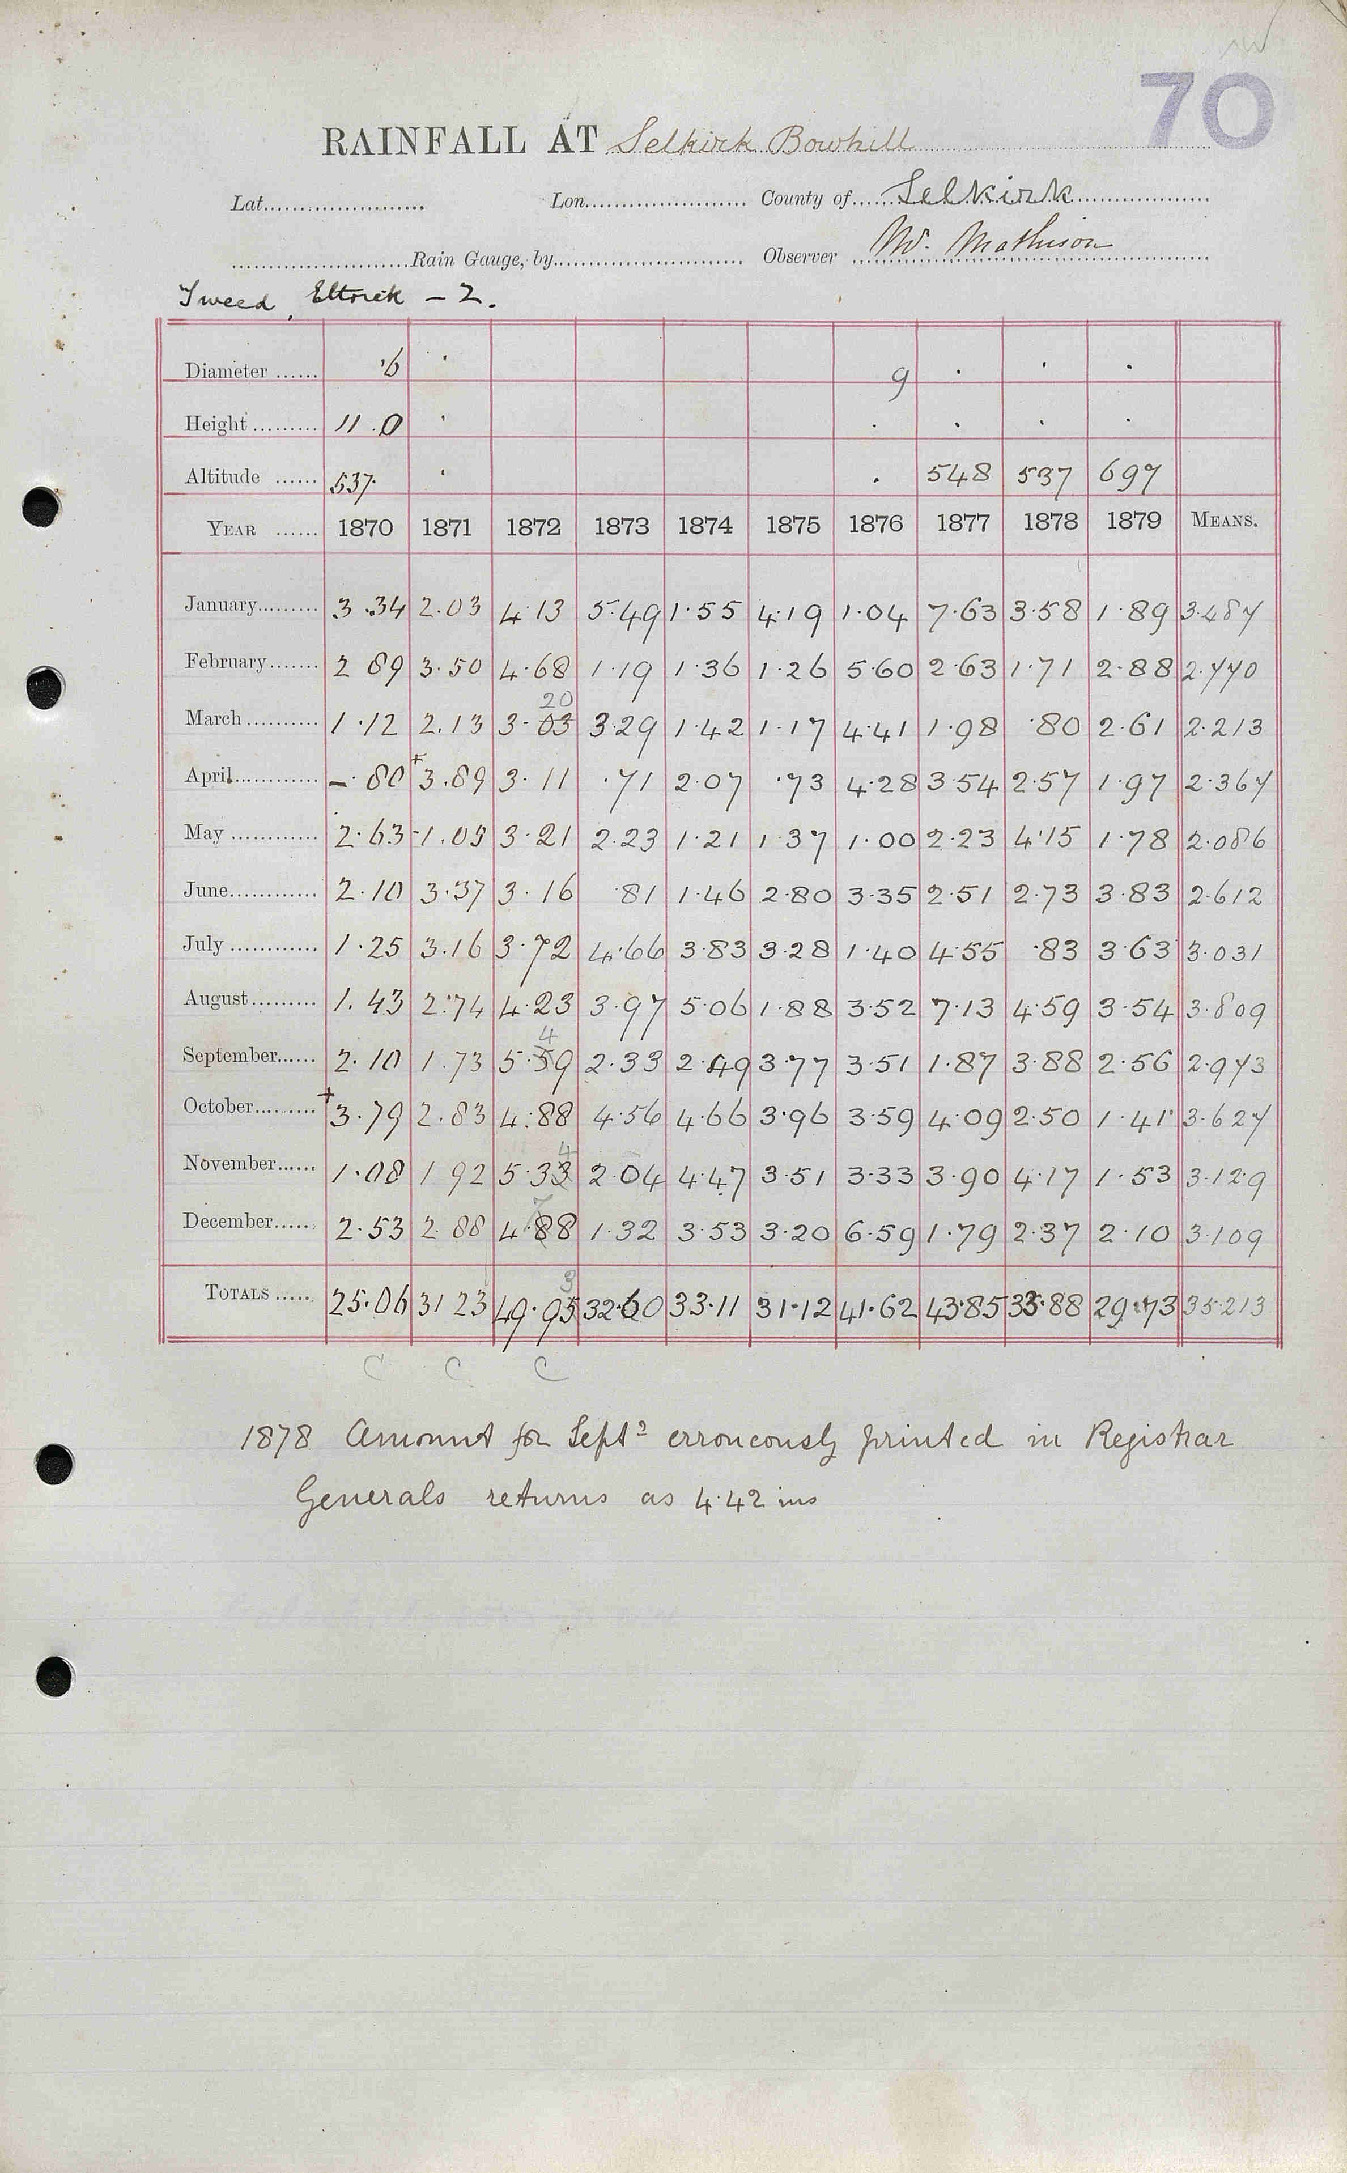 70
RAINFALL AT Selkirk Bowhill
Lat. Lon. County of Selkirk
Rain Gauge, by Observer W. Mathison
Tweed, Ettrick – 2.
Diameter ·6 9
Height 11.0
Altitude 537 548 537 697
YEAR 1870 1871 1872 1873 1874 1875 1876 1877 1878 1879 MEANS.
January 3.34 2.03 4.13 5.49 1.55 4.19 1.04 7.63 3.58 1.89 3.487
February 2.89 3.50 4.68 1.19 1.36 1.26 5.60 2.63 1.71 2.88 2.770
20
March 1.12 2.13 3.03 3.29 1.42 1.17 4.41 1.98 .80 2.61 2.213
April –.80 +3.89 3.11 .71 2.07 .73 4.28 3.54 2.57 1.97 2.367
May 2.63 1.05 3.21 2.23 1.21 1.37 1.00 2.23 4.15 1.78 2.086
June 2.10 3.37 3.16 .81 1.46 2.80 3.35 2.51 2.73 3.83 2.612
July 1.25 3.16 3.72 4.66 3.83 3.28 1.40 4.55 .83 3.63 3.031
August 1.43 2.74 4.23 3.97 5.06 1.88 3.52 7.13 4.59 3.54 3.809
4
September 2.10 1.73 5.59 2.33 2.49 3.77 3.51 1.87 3.88 2.56 2.973
October +3.79 2.83 4.88 4.56 4.66 3.96 3.59 4.09 2.50 1.41 3.627
4
November 1.08 1.92 5.33 2.04 4.47 3.51 3.33 3.90 4.17 1.53 3.129
7
December 2.53 2.88 4.88 1.32 3.53 3.20 6.59 1.79 2.37 2.10 3.109
3
TOTALS 25.06 31.23 49.95 32.60 33.11 31.12 41.62 43.85 33.88 29.73 35.213
C C C
1878 Amount for Sept^r erroneously printed in Registrar
Generals returns as 4.42 ins